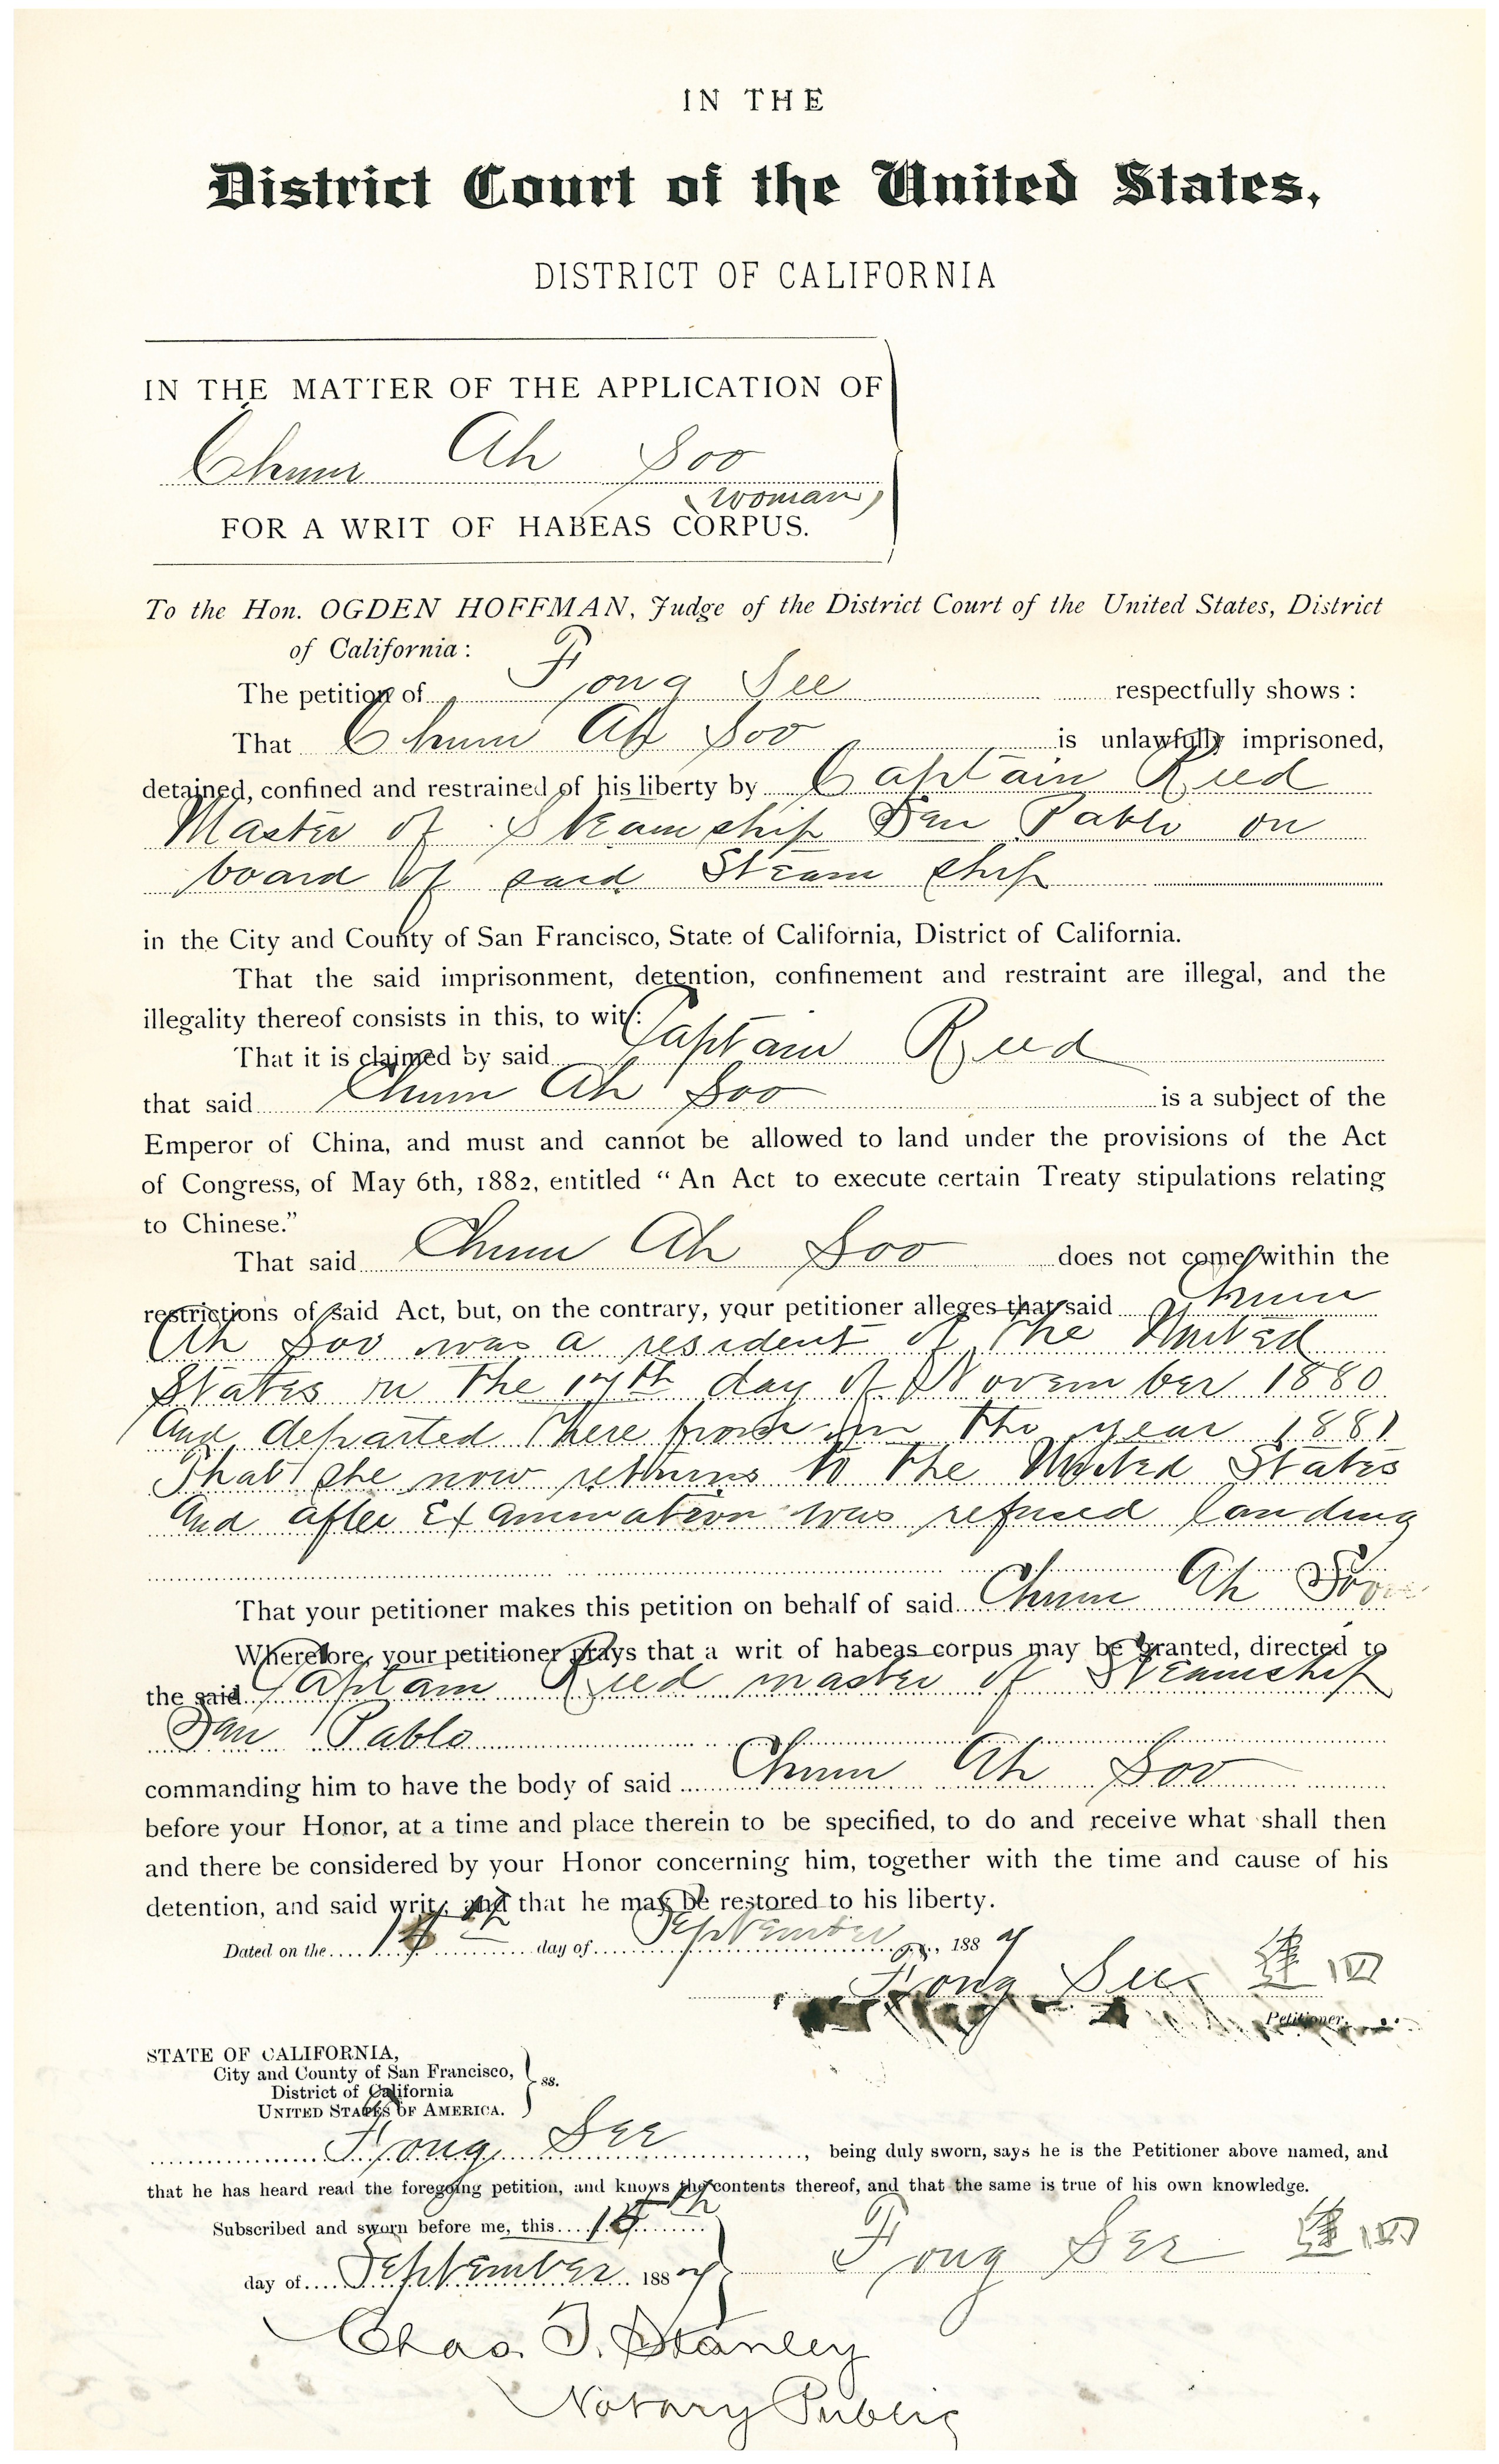 IN THE
District Court of the United States,
DISTRICT OF CALIFORNIA
IN THE MATTER OF THE APPLICATION OF
Chum Ah Soo
(woman)
FOR A WRIT OF HABEAS CORPUS.
To the Hon. OGDEN HOFFMAN, Judge of the District Court of the United States, District
of California:
The petition of Fong See respectfully shows:
That Chum Ah Soo is unlawfully imprisoned,
detained, confined and restrained of his liberty by Captain Reed
Master of Steamship San Pablo on
board of said Steam ship
in the City and County of San Francisco, State of California, District of California.
That the said imprisonment, detention, confinement and restraint are illegal, and the
illegality thereof consists in this, to wit:
That it is claimed by said Captain Reed
that said Chum Ah Soo is a subject of the
Emperor of China, and must and cannot be allowed to land under the provisions of the Act
of Congress, of May 6th, 1882, entitled "An Act to execute certain Treaty stipulations relating
to Chinese."
That said Chum Ah Soo does not come within the
restrictions of said Act, but, on the contrary, your petitioner alleges that said Chum
Ah Soo was a resident of the United
States on the 17th day of November 1880
And departed there from in the year 1881
That she now returns to the United States
And after Examination was refused landing
That your petitioner makes this petition on behalf of said Chum Ah Soo
Wherefore, your petitioner prays that a writ of habeas corpus may be granted, directed to
the said Captain Reed master of Steamship
San Pablo
commanding him to have the body of said Chum Ah Soo
before your Honor, at a time and place therein to be specified, to do and receive what shall then
and there be considered by your Honor concerning him, together with the time and cause of his
detention, and said writ; and that he may be restored to his liberty.
Dated on the day of September, 1887
Fong See 四
Petitioner.
STATE OF CALIFORNIA,
City and County of San Francisco,
District of California
UNITED STATES OF AMERICA.
ss.
Fong See, being duly sworn, says he is the Petitioner above named, and
that he has heard read the foregoing petition, and knows the contents thereof, and that the same is true of his own knowledge.
Subscribed and sworn before me, this
day of September 1887
Fong See 四
Chas. T. Stanley
Notary Public